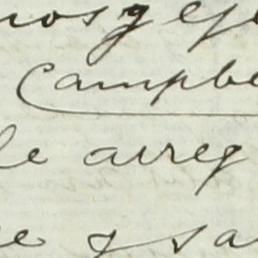 nos y ef
Campbe
le arreg
e y sa